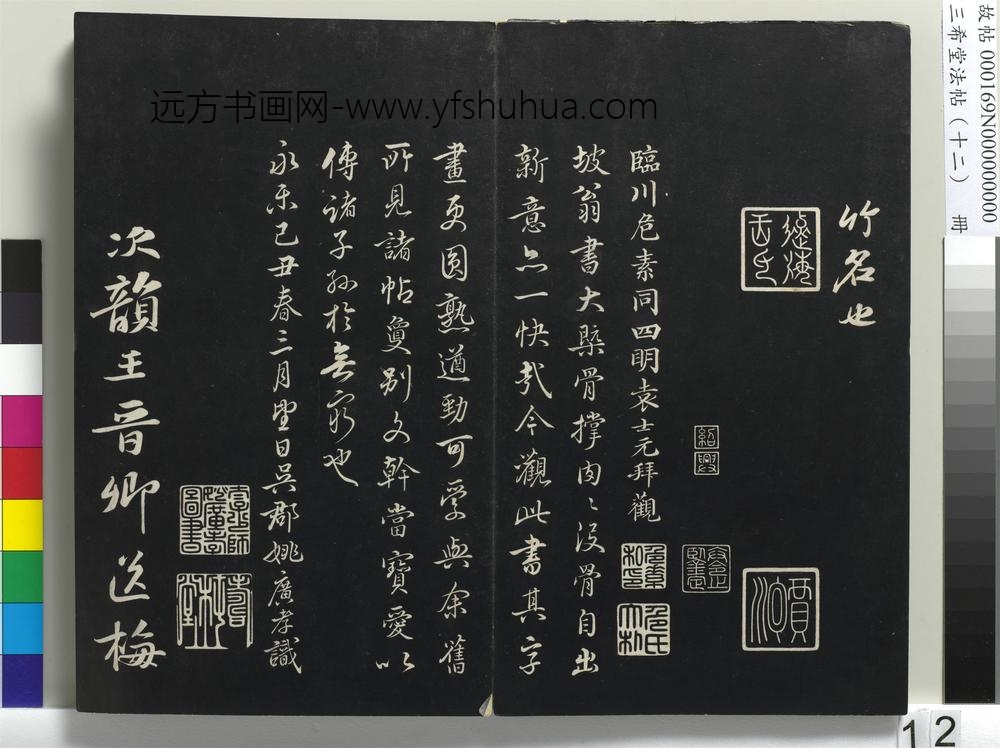 故帖 000169N000000000
三希堂法帖（十二） 冊
远方书画网-www.yfshuhua.com
竹名也
紹興
臨川危素同四明袁士元拜觀
坡翁書大槩骨撑肉肉沒骨自出
新意亦一快哉今觀此書其字
畫更圓熟遒勁可愛與余舊
所見諸帖夐别文幹當寶愛以
傳諸子孫於無窮也
永樂己丑春三月望日吳郡姚廣孝識
次韻王晉卿送梅
12